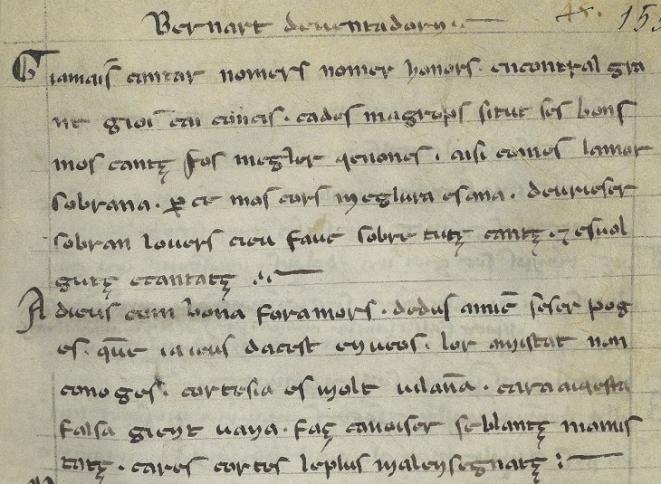 Bernart deuentadorn.
Giamais cantar nomers nomer honors. encontral gra
nt gioi cai concis. cades magrops situt ses bons
mos cantz fos meglor qenones. aisi comes lamor
sobrana. per ce mos cors meglura esana. deurieser
sobran louers cieu fauc sobre tutz cantz. 7 esuol
gutz ecantatz.
A dieus com bona foramors. dedus amic seser pog
es. que iaieus dacest enueos. lor amistat non
conoges. cortesia es molt uilana. cara aiqesta
falsa gient uana. faz conoiser seblantz mamis
tatz. cares cortes leplus malensegnatz